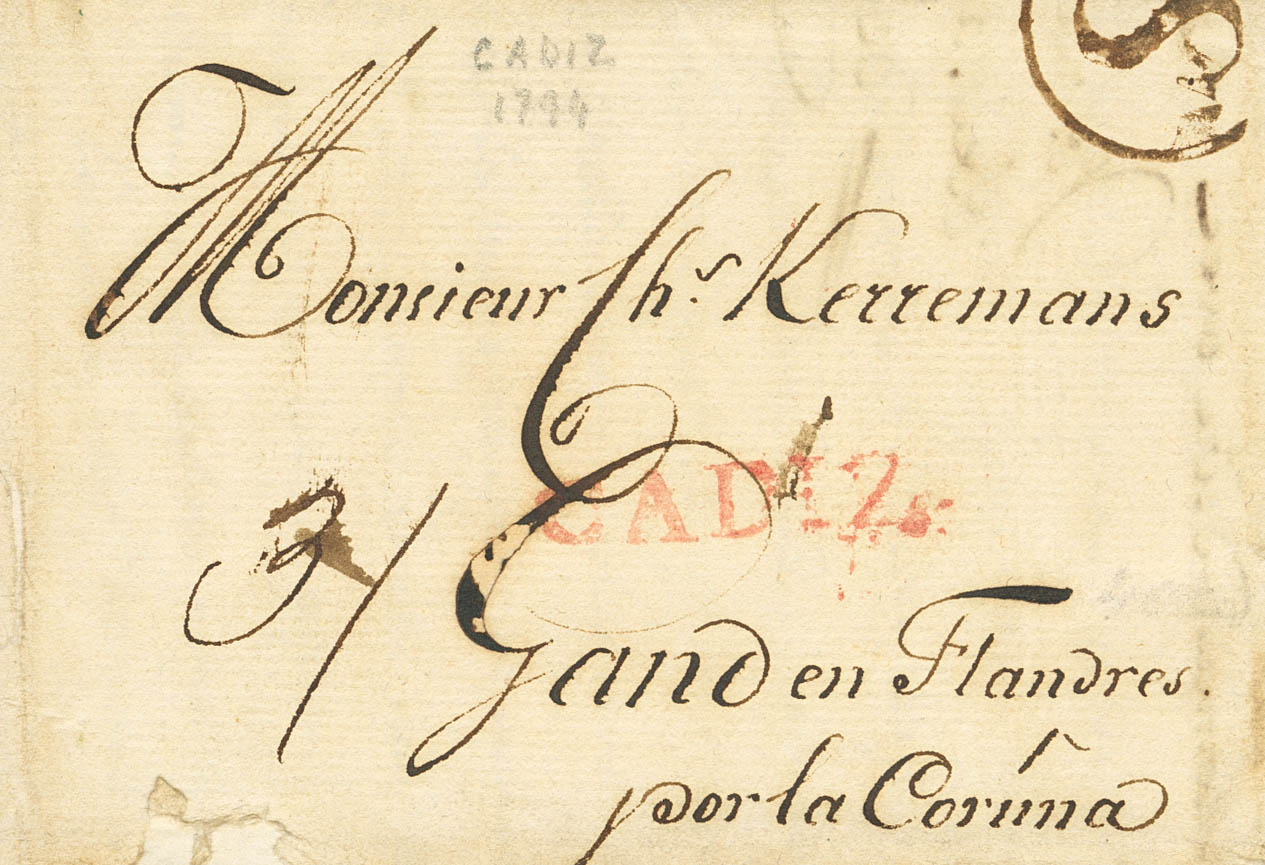 CADIZ
1794
S
Monsieur Chs. Kerremans
CADIZ
3/
Gand en Flandres.
por la Coruña